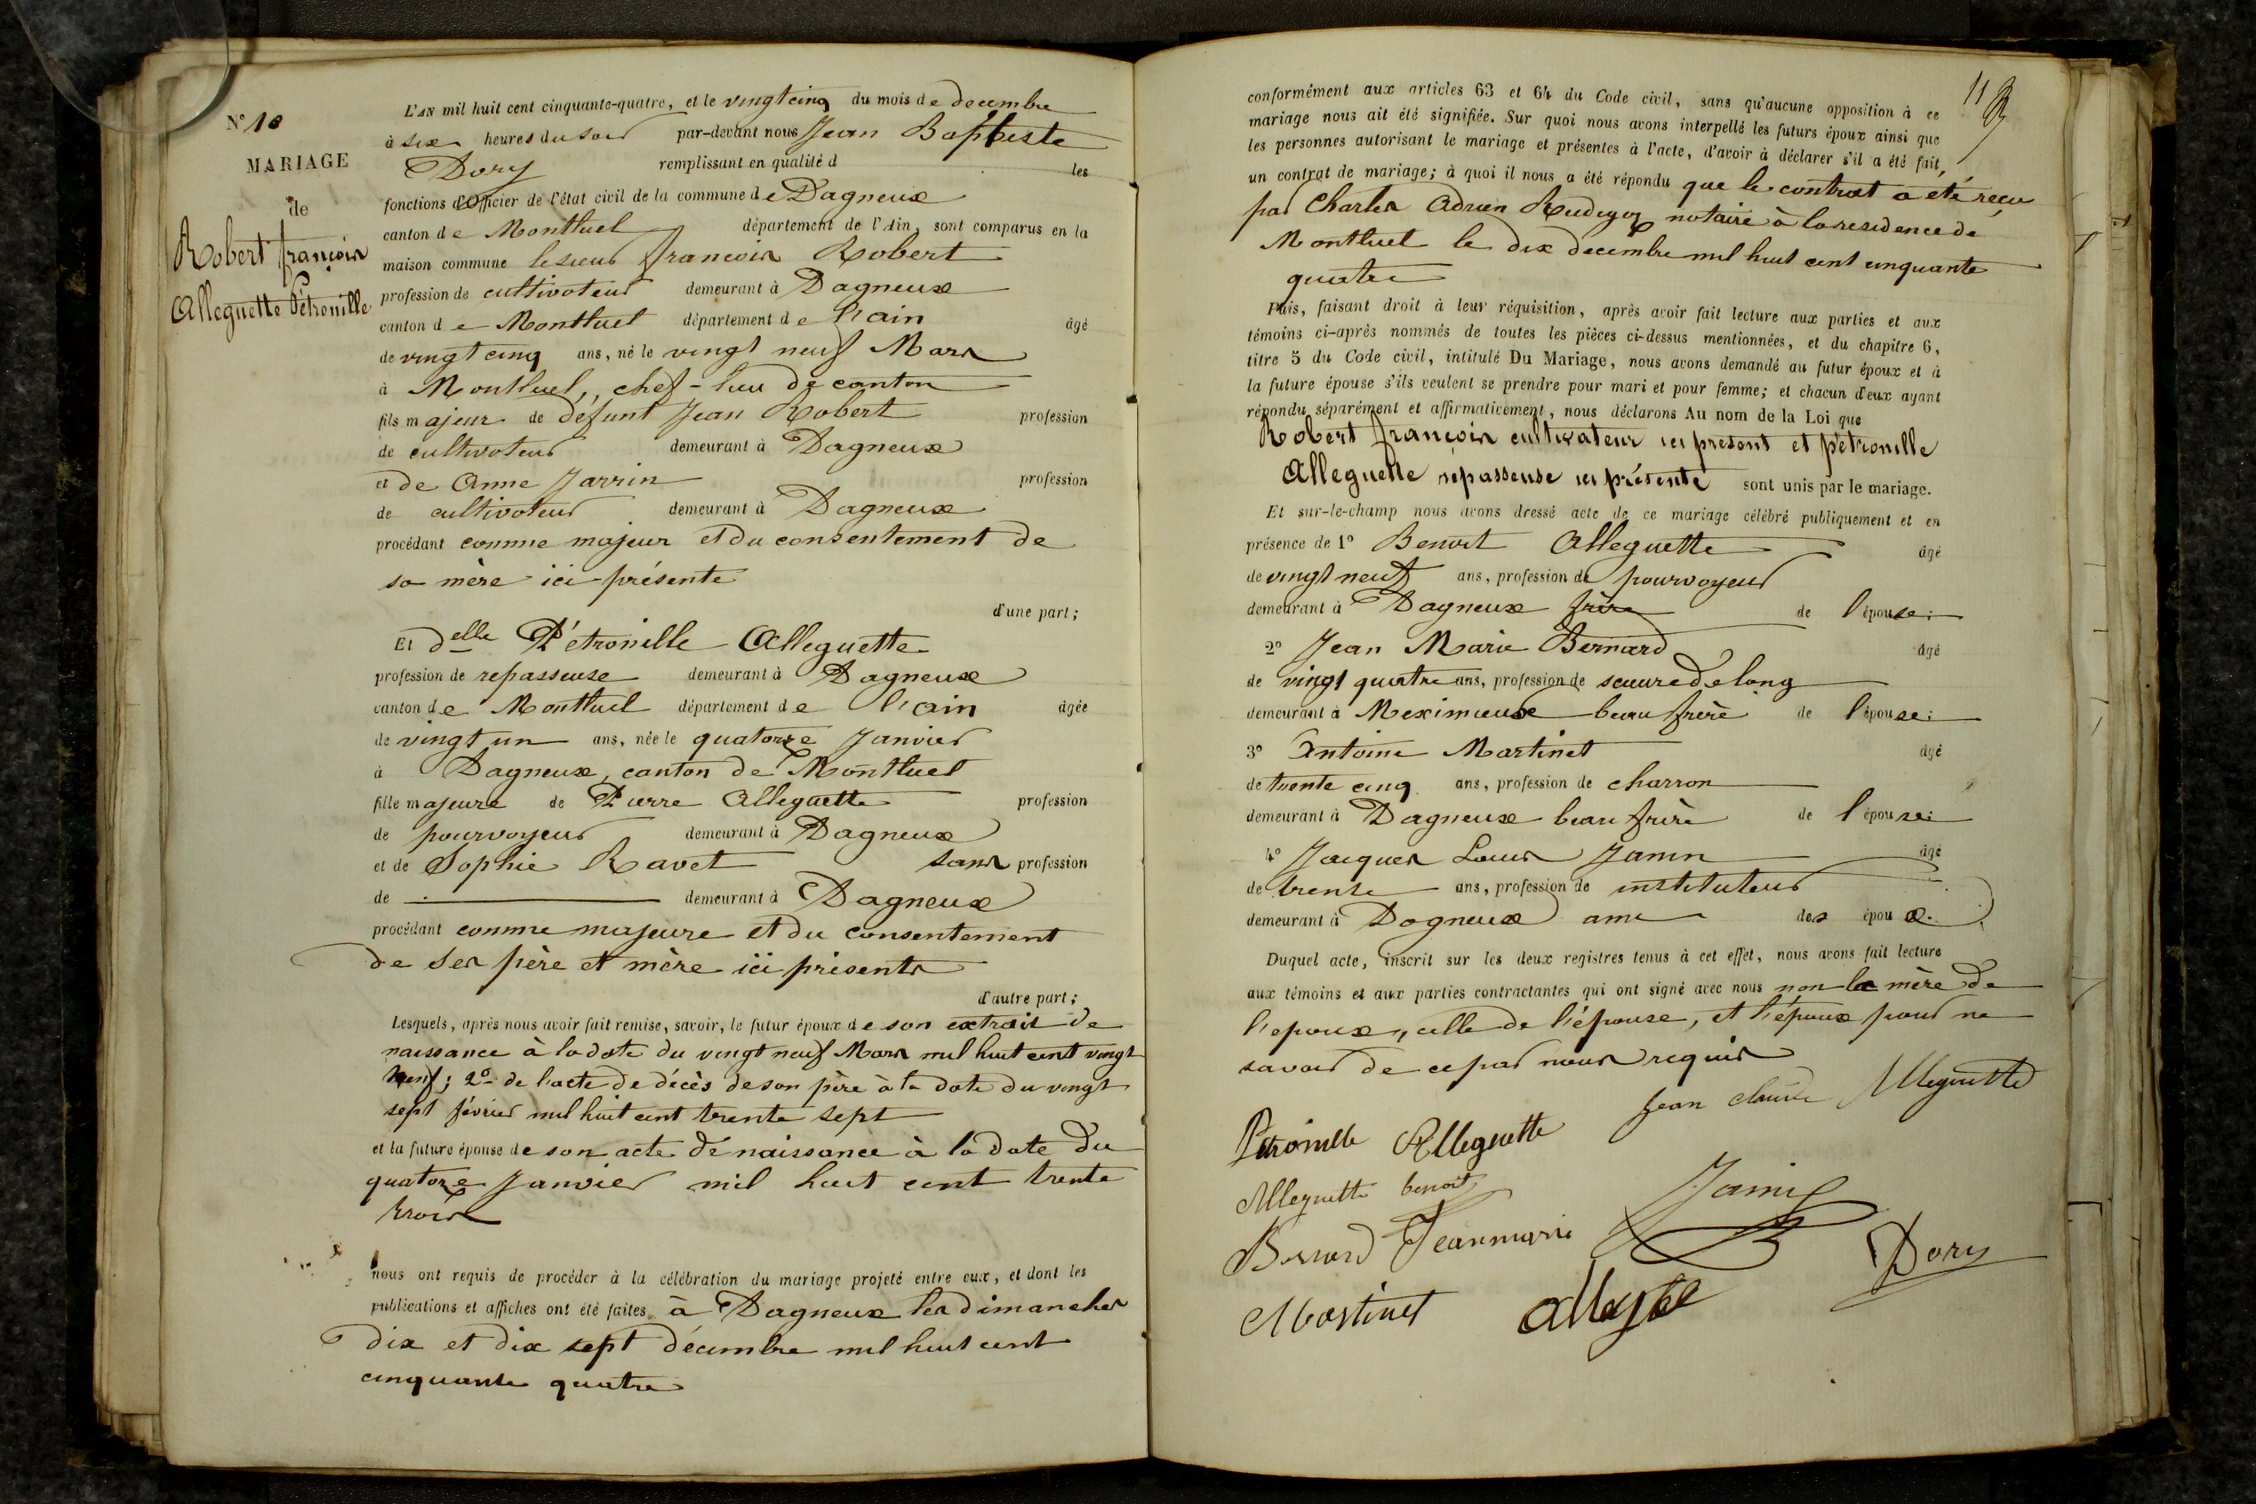 N° 10
MARIAGE
de
Robert françois
&
Alleguette Pétronille
L'AN mil huit cent cinquante-quatre, et le vingt cinq du mois de decembre
à six heures du soir par-devant nous Jean Baptiste
Dory remplissant en qualité d les
fonctions d'Officier de l'état civil de la commune de Dagneux
canton de Montluel département de l'Ain, sont comparus en la
maison commune le sieur françois Robert
profession de cultivateur demeurant à Dagneux
canton de Montluel département de l'ain âgé
de vingt cinq ans, né le vingt neuf Mars
à Montluel, chef-lieu de canton
fils majeur de défunt Jean Robert profession
de cultivateur demeurant à Dagneux
et de Anne Jarrin profession
de cultivateur demeurant à Dagneux
procédant comme majeur et du consentement de
sa mère ici présente
d'une part ;
Et delle Pétronille Alleguette
profession de repasseuse demeurant à Dagneux
canton de Montluel département de l'ain âgée
de vingt un ans, née le quatorze Janvier
à Dagneux, canton de Montluel
fille majeure de Pierre Alleguette profession
de pourvoyeur demeurant à Dagneux
et de Sophie Ravet sans profession
de demeurant à Dagneux
procédant comme majeure et du consentement
de ses père et mère ici présents
d'autre part ;
Lesquels, après nous avoir fait remise, savoir, le futur époux de son extrait de
naissance à la date du vingt neuf Mars mil huit cent vingt
neuf ; 2° de l'acte de décès de son père à la date du vingt
sept février mil huit cent trente sept
et la future épouse de son acte de naissance à la date du
quatorze Janvier mil huit cent trente
trois
nous ont requis de procéder à la célébration du mariage projeté entre eux, et dont les
publications et affiches ont été faites à Dagneux les dimanches
dix et dix sept décembre mil huit cent
cinquante quatre
11
conformément aux articles 63 et 64 du Code civil, sans qu'aucune opposition à ce
mariage nous ait été signifiée. Sur quoi nous avons interpellé les futurs époux ainsi que
les personnes autorisant le mariage et présentes à l'acte, d'avoir à déclarer s'il a été fait,
un contrat de mariage ; à quoi il nous a été répondu que le contrat a été reçu
par Charles Adrien notaire à la residence de
Montluel le dix decembre mil huit cent cinquante
quatre
Puis, faisant droit à leur réquisition, après avoir fait lecture aux parties et aux
témoins ci-après nommés de toutes les pièces ci-dessus mentionnées, et du chapitre 6,
titre 5 du Code civil, intitulé Du Mariage, nous avons demandé au futur époux et à
la future épouse s'ils veulent se prendre pour mari et pour femme ; et chacun d'eux ayant
répondu séparément et affirmativement, nous déclarons Au nom de la Loi que
Robert françois cultivateur ici present et pétronille
Alleguette repasseuse ici présente sont unis par le mariage.
Et sur-le-champ nous avons dressé acte de ce mariage célébré publiquement et en
présence de 1° Benoit Alleguette âgé
de vingt neuf ans, profession de pourvoyeur
demeurant à Dagneux frère de l'épouse ;
2° Jean Marie Bernard âgé
de vingt quatre ans, profession de scieur de long
demeurant à Meximieux beau frère de l'épouse ;
3° Antoine Martinet âgé
de trente cinq ans, profession de charron
demeurant à Dagneux beau frère de l'épouse ;
4° Jacques Louis Janin âgé
de trente ans, profession de instituteur
demeurant à Dagneux ami des époux.
Duquel acte, inscrit sur les deux registres tenus à cet effet, nous avons fait lecture
aux témoins et aux parties contractantes qui ont signé avec nous non la mère de
l'epoux, celle de l'épouse, et l'époux pour ne
savoir de ce par nous requis
Jean claude Alleguette
Pétronille Alleguette
Alleguette benoit
Janin
Bernard Jeanmarie
Dory
Martinet